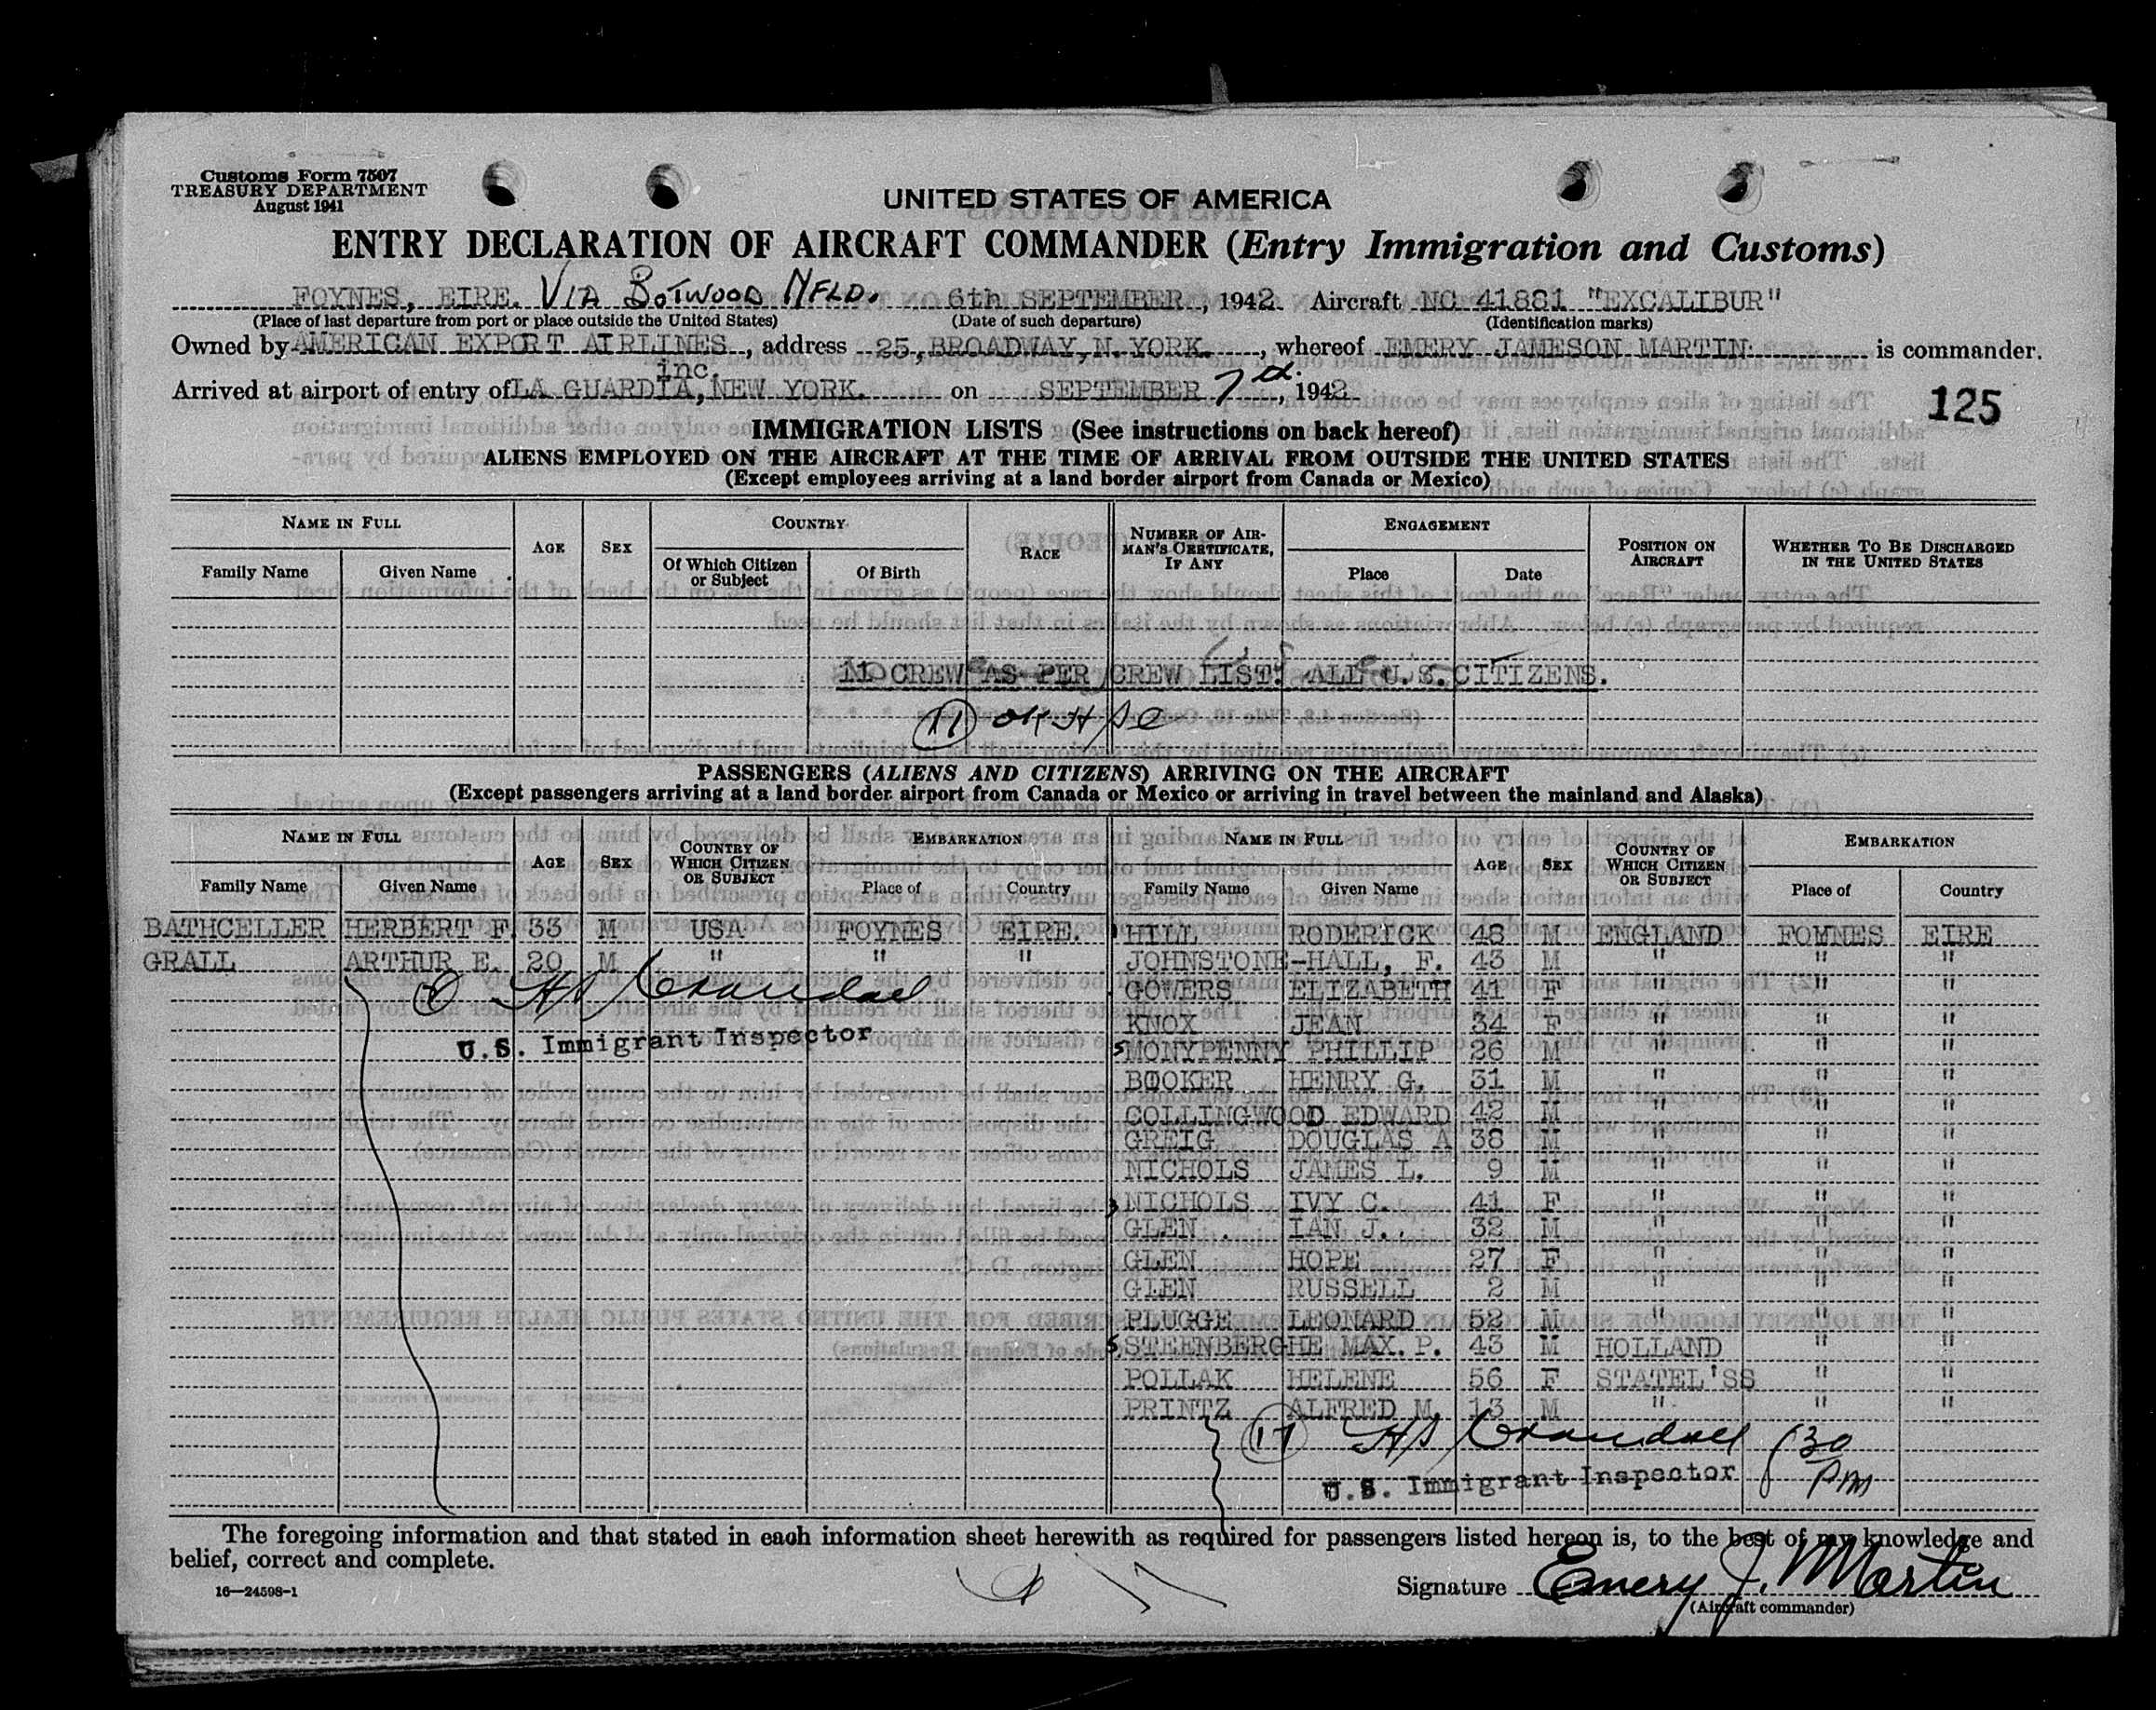 Customs Form 7507
TREASURY DEPARTMENT
August 1941
UNITED STATES OF AMERICA
ENTRY DECLARATION OF AIRCRAFT COMMANDER (Entry Immigration and Customs)
FOYNES, EIRE. VIA BOTWOOD NFLD. 6th SEPTEMBER, 1942 Aircraft NC 41881 "EXCALIBUR"
(Place of last departure from port or place outside the United States) (Date of such departure) (Identification marks)
Owned by AMERICAN EXPORT AIRLINES, address 25, BROADWAY, N. YORK., whereof EMERY JAMESON MARTIN is commander.
inc.
Arrived at airport of entry of LA GUARDIA, NEW YORK. on SEPTEMBER 7th, 1942
125
IMMIGRATION LISTS (See instructions on back hereof)
ALIENS EMPLOYED ON THE AIRCRAFT AT THE TIME OF ARRIVAL FROM OUTSIDE THE UNITED STATES
(Except employees arriving at a land border airport from Canada or Mexico)
NAME IN FULL AGE SEX COUNTRY RACE NUMBER OF AIRMAN'S CERTIFICATE, IF ANY ENGAGEMENT POSITION ON AIRCRAFT WHETHER TO BE DISCHARGED IN THE UNITED STATES
Family Name Given Name Of Which Citizen or Subject Of Birth Place Date
11 CREW AS PER CREW LIST. ALL U.S. CITIZENS.
11 OK
PASSENGERS (ALIENS AND CITIZENS) ARRIVING ON THE AIRCRAFT
(Except passengers arriving at a land border airport from Canada or Mexico or arriving in travel between the mainland and Alaska)
NAME IN FULL AGE SEX COUNTRY OF WHICH CITIZEN OR SUBJECT EMBARKATION NAME IN FULL AGE SEX COUNTRY OF WHICH CITIZEN OR SUBJECT EMBARKATION
Family Name Given Name Place of Country Family Name Given Name Place of Country
BATHCELLER HERBERT F. 33 M USA FOYNES EIRE. HILL RODERICK 48 M ENGLAND FOYNES EIRE
GRALL ARTHUR E. 20 M " " " JOHNSTONE-HALL, F. 43 M " " "
GOWERS ELIZABETH 41 F " " "
KNOX JEAN 34 F " " "
U.S. Immigrant Inspector
MONYPENNY PHILLIP 26 M " " "
BOOKER HENRY G. 31 M " " "
COLLINGWOOD EDWARD 42 M " " "
GREIG DOUGLAS A 38 M " " "
NICHOLS JAMES L. 9 M " " "
NICHOLS IVY C. 41 F " " "
GLEN IAN J. 32 M " " "
GLEN HOPE 27 F " " "
GLEN RUSSELL 2 M " " "
PLUGGE LEONARD 52 M " " "
STEENBERGHE MAX. P. 43 M HOLLAND " "
POLLAK HELENE 56 F STATEL'SS " "
PRINTZ ALFRED M. 13 M " " "
17 30 PM
U.S. Immigrant Inspector
The foregoing information and that stated in each information sheet herewith as required for passengers listed hereon is, to the best of my knowledge and
belief, correct and complete.
16—24598-1
Signature Emery J. Martin
(Aircraft commander)